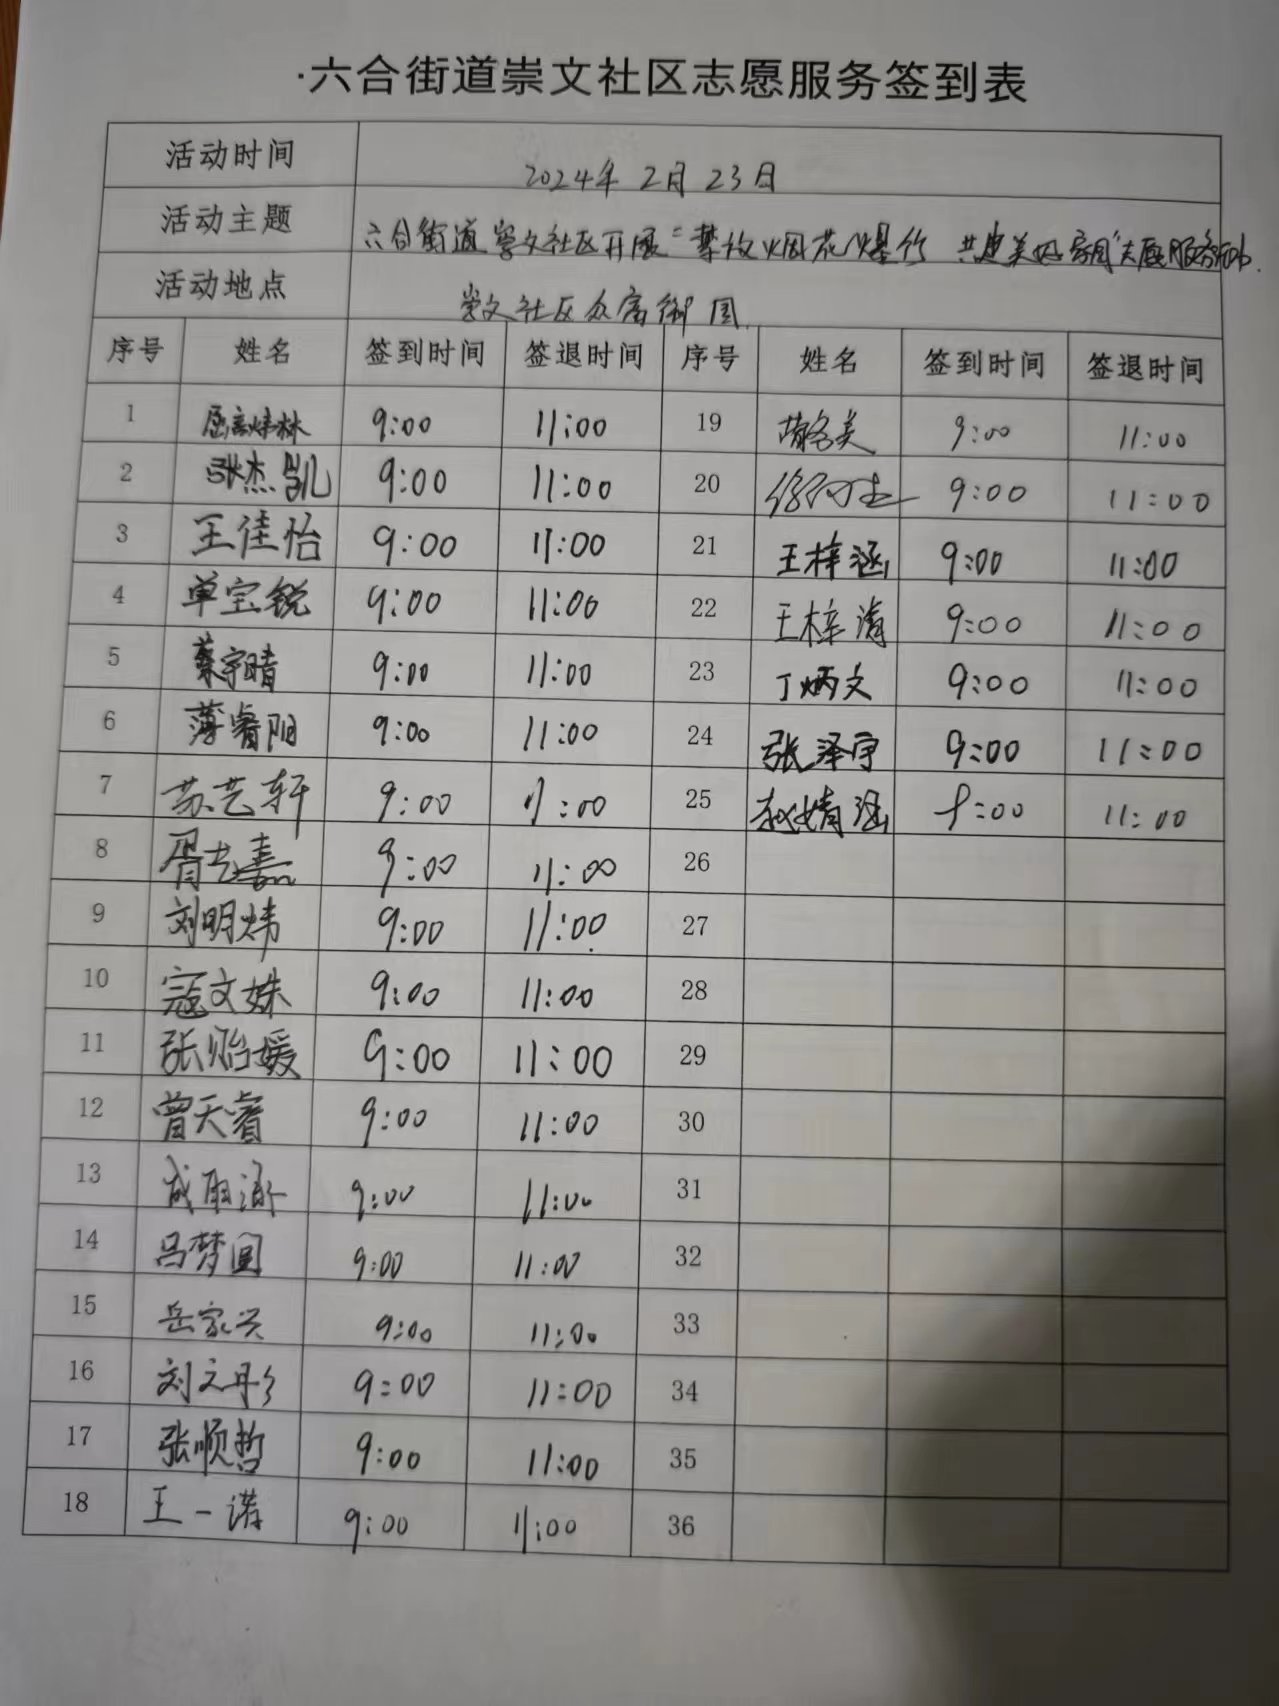 ·六合街道崇文社区志愿服务签到表
活动时间 2024年2月23日
活动主题 六合街道崇文社区开展"禁放烟花爆竹 共建美好家园"志愿服务活动.
活动地点 崇文社区众富御园
序号 姓名 签到时间 签退时间 序号 姓名 签到时间 签退时间
1 9:00 11:00 19 9:00 11:00
2 张杰凯 9:00 11:00 20 9:00 11:00
3 王佳怡 9:00 11:00 21 王梓涵 9:00 11:00
4 单宝锐 9:00 11:00 22 王梓清 9:00 11:00
5 蔡宇晴 9:00 11:00 23 丁炳文 9:00 11:00
6 薄睿阳 9:00 11:00 24 张泽宇 9:00 11:00
7 苏艺轩 9:00 11:00 25 赵婧涵 9:00 11:00
8 胥艺嘉 9:00 11:00 26
9 刘明炜 9:00 11:00 27
10 寇文姝 9:00 11:00 28
11 张贻媛 9:00 11:00 29
12 曾天睿 9:00 11:00 30
13 9:00 11:00 31
14 吕梦圆 9:00 11:00 32
15 岳家兴 9:00 11:00 33
16 刘文彤 9:00 11:00 34
17 张顺哲 9:00 11:00 35
18 王一诺 9:00 11:00 36